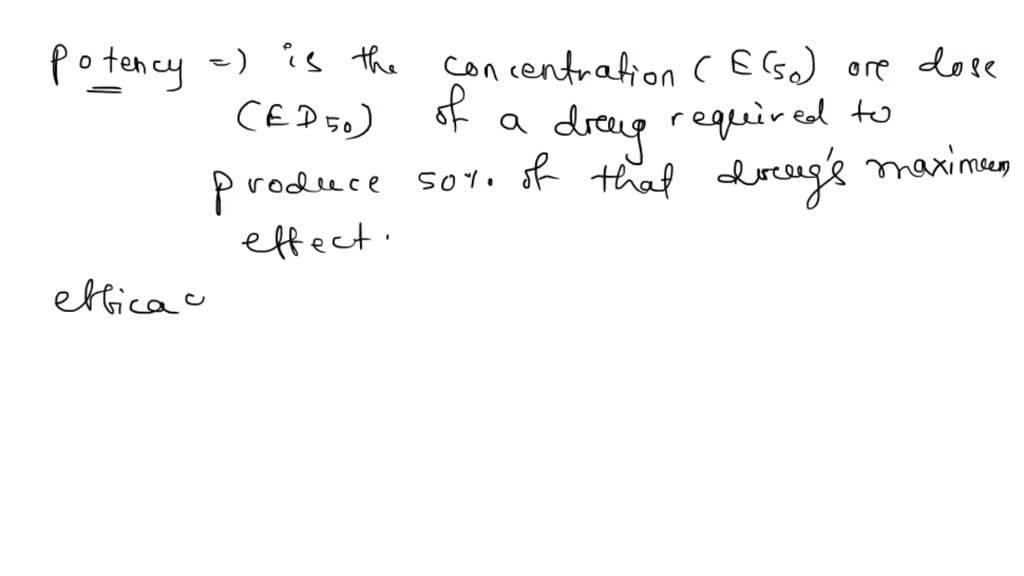 potency => is the concentration (EC50) ore dose
(ED50) of a dreug required to
produce 50%. of that dreug's maximum
effect.
efficac